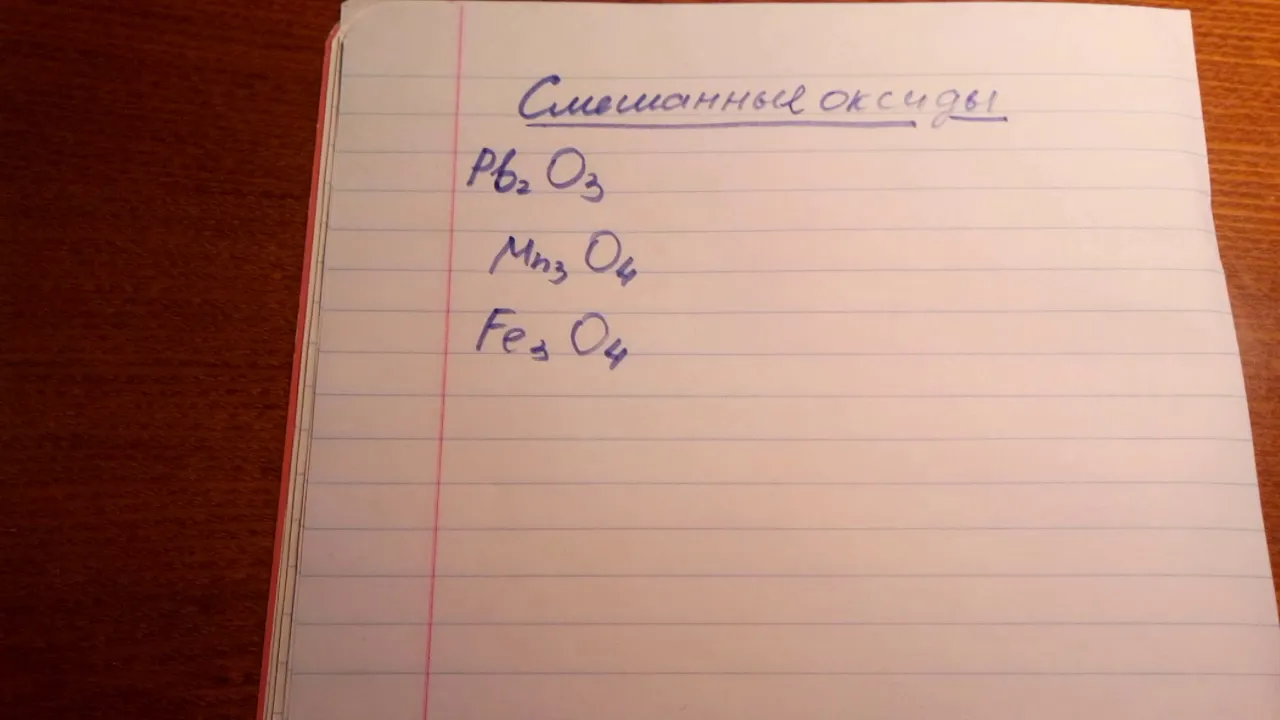 Смешанные оксиды
Pb₂O₃
Mn₃O₄
Fe₃O₄